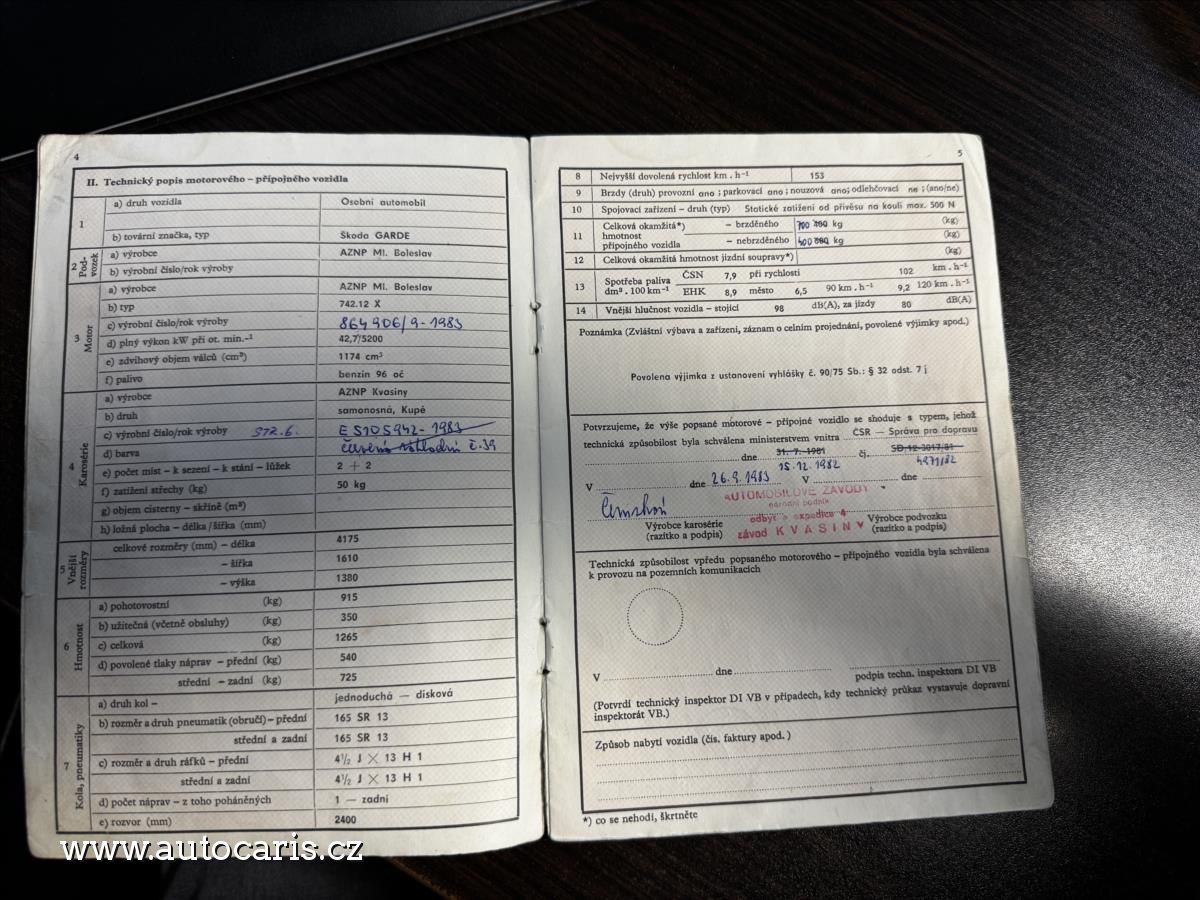 4
II. Technický popis motorového – přípojného vozidla
1 a) druh vozidla Osobní automobil
b) tovární značka, typ Škoda GARDE
2 Pod-vozek a) výrobce AZNP Ml. Boleslav
b) výrobní číslo/rok výroby
3 Motor a) výrobce AZNP Ml. Boleslav
b) typ 742.12 X
c) výrobní číslo/rok výroby 864906/9-1983
d) plný výkon kW při ot. min.-¹ 42,7/5200
e) zdvihový objem válců (cm³) 1174 cm³
f) palivo benzín 96 oč
4 Karosérie a) výrobce AZNP Kvasiny
b) druh samonosná, Kupé
c) výrobní číslo/rok výroby STR. 6. ES105942-1983
d) barva č.39
e) počet míst – k sezení – k stání – lůžek 2 + 2
f) zatížení střechy (kg) 50 kg
g) objem cisterny – skříně (m³)
h) ložná plocha – délka/šířka (mm)
5 Vnější rozměry celkové rozměry (mm) – délka 4175
– šířka 1610
– výška 1380
6 Hmotnost a) pohotovostní (kg) 915
b) užitečná (včetně obsluhy) (kg) 350
c) celková (kg) 1265
d) povolené tlaky náprav – přední (kg) 540
střední – zadní (kg) 725
7 Kola, pneumatiky a) druh kol – jednoduchá — disková
b) rozměr a druh pneumatik (obručí) – přední 165 SR 13
střední a zadní 165 SR 13
c) rozměr a druh ráfků – přední 4½ J X 13 H 1
střední a zadní 4½ J X 13 H 1
d) počet náprav – z toho poháněných 1 — zadní
e) rozvor (mm) 2400
5
8 Nejvyšší dovolená rychlost km . h-¹ 153
9 Brzdy (druh) provozní ano ; parkovací ano ; nouzová ano; odlehčovací ne ; (ano/ne)
10 Spojovací zařízení – druh (typ) Statické zatížení od přívěsu na kouli max. 500 N
11 Celková okamžitá*) hmotnost přípojného vozidla – brzděného 700 kg (kg)
– nebrzděného 400 kg (kg)
12 Celková okamžitá hmotnost jízdní soupravy*) (kg)
13 Spotřeba paliva dm³ . 100 km-¹ ČSN 7,9 při rychlosti 102 km . h-¹
EHK 8,9 město 6,5 90 km . h-¹ 9,2 120 km . h-¹
14 Vnější hlučnost vozidla – stojící 98 dB(A), za jízdy 80 dB(A)
Poznámka (Zvláštní výbava a zařízení, záznam o celním projednání, povolené výjimky apod.)
Povolena výjimka z ustanovení vyhlášky č. 90/75 Sb.: § 32 odst. 7 j
Potvrzujeme, že výše popsané motorové – přípojné vozidlo se shoduje s typem, jehož
technická způsobilost byla schválena ministerstvem vnitra ČSR — Správa pro dopravu
dne 31. 7. 1981 čj. SD/12-3017/81
15.12.1982 4271/82
V dne 26.9.1983 V dne
AUTOMOBILOVÉ ZÁVODY
národní podnik
odbyt a expedice 4
závod KVASINY
Výrobce karosérie
(razítko a podpis)
Výrobce podvozku
(razítko a podpis)
Technická způsobilost vpředu popsaného motorového – přípojného vozidla byla schválena
k provozu na pozemních komunikacích
V dne
podpis techn. inspektora DI VB
(Potvrdí technický inspektor DI VB v případech, kdy technický průkaz vystavuje dopravní
inspektorát VB.)
Způsob nabytí vozidla (čís. faktury apod.)
*) co se nehodí, škrtněte
www.autocaris.cz